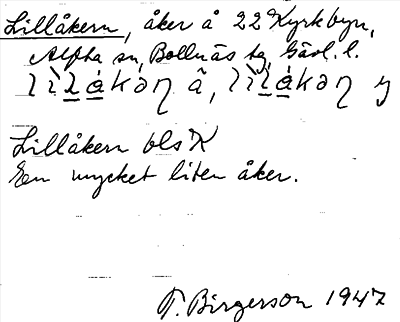 Lillåkern, åker å 22 Kyrkbyn,
Alfta sn, Bollnäs tg, Gävl. l.
Lillåkern bls K
En mycket liten åker.
T. Birgerson 1947